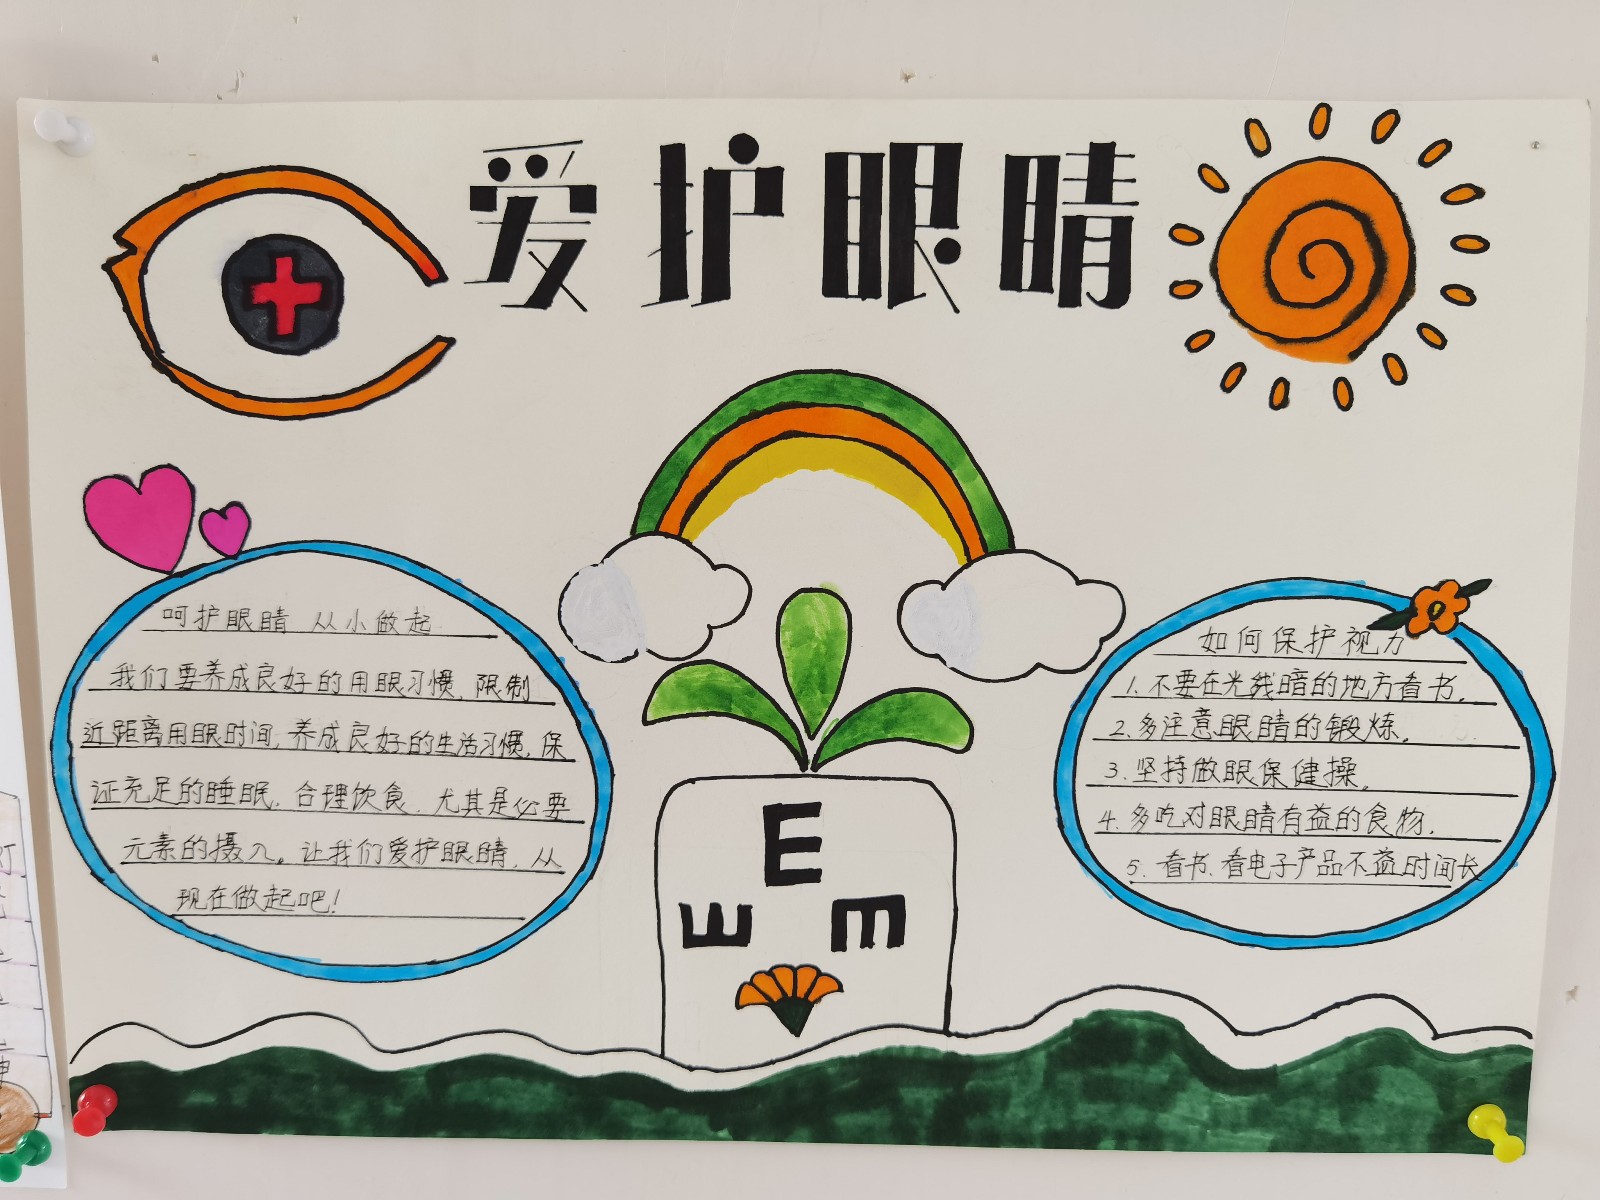 爱护眼睛
呵护眼睛 从小做起
我们要养成良好的用眼习惯,限制
近距离用眼时间,养成良好的生活习惯,保
证充足的睡眠,合理饮食.尤其是必要
元素的摄入。让我们爱护眼睛,从
现在做起吧!
E
E
E
如何保护视力
1.不要在光线暗的地方看书.
2.多注意眼睛的锻炼.
3.坚持做眼保健操.
4.多吃对眼睛有益的食物.
5.看书、看电子产品不益时间长